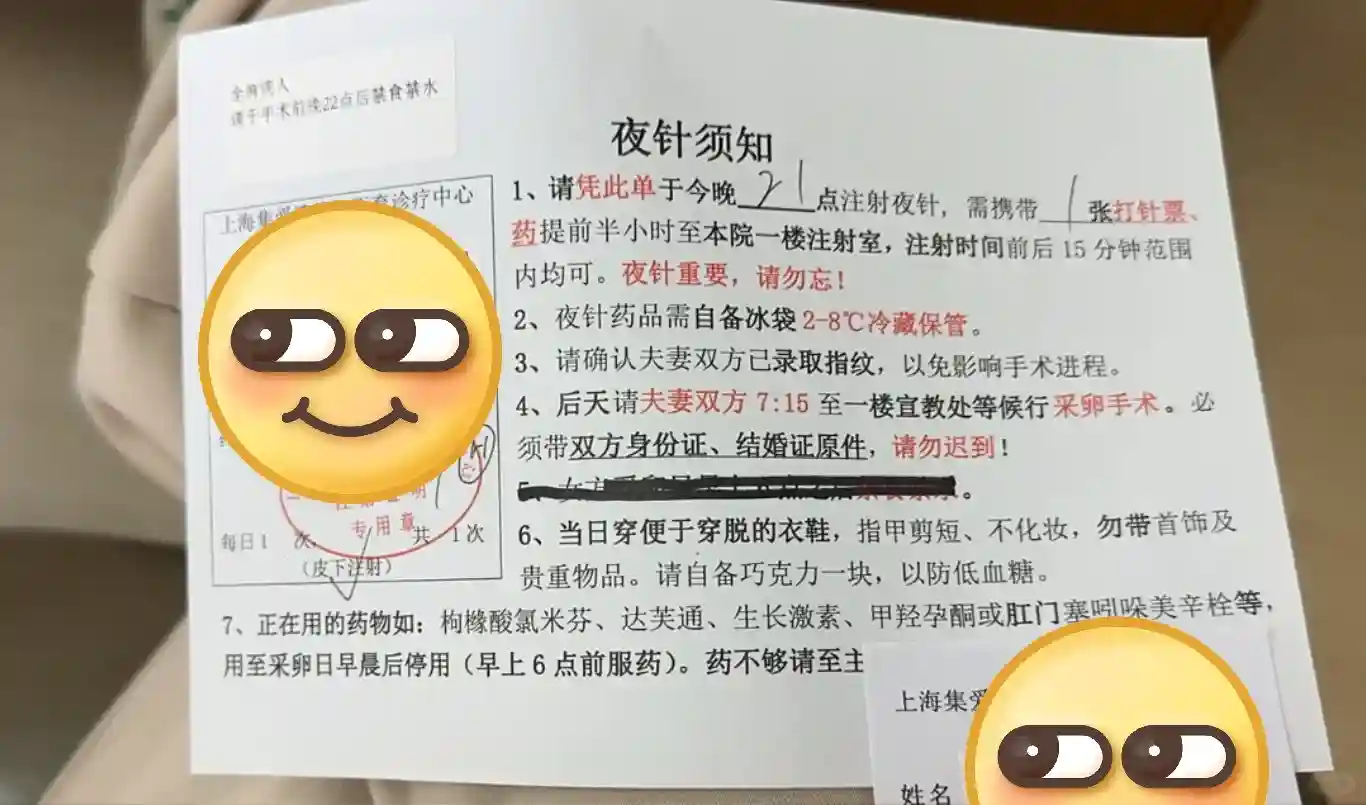 全麻病人
请于手术前晚22点后禁食禁水
夜针须知
1、请凭此单于今晚 21 点注射夜针，需携带 1 张打针票、
药提前半小时至本院一楼注射室，注射时间前后 15 分钟范围
内均可。夜针重要，请勿忘！
2、夜针药品需自备冰袋 2-8℃冷藏保管。
3、请确认夫妻双方已录取指纹，以免影响手术进程。
4、后天请夫妻双方 7:15 至一楼宣教处等候行 采卵手术。必
须带双方身份证、结婚证原件，请勿迟到！
6、当日穿便于穿脱的衣鞋，指甲剪短、不化妆，勿带首饰及
贵重物品。请自备巧克力一块，以防低血糖。
上海集爱 诊疗中心
专用章
每日1 次， 共 1次
（皮下注射）
7、正在用的药物如：枸橼酸氯米芬、达芙通、生长激素、甲羟孕酮或肛门塞吲哚美辛栓等，
用至采卵日早晨后停用（早上 6 点前服药）。药不够请至主
上海集爱
姓名